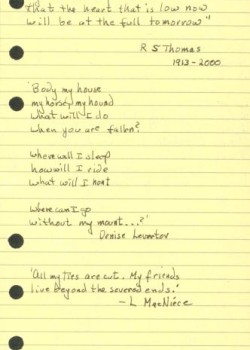 that the heart that is low now
will be at the full tomorrow"
R S Thomas
1913-2000
'Body my house
my horse my hound
what will I do
when you are fallen?
where will I sleep
how will I ride
what will I hunt
Where can I go
without my mount...?'
Denise Levertov
'All my ties are cut. My friends
live beyond the severed ends.'
- L MacNiece